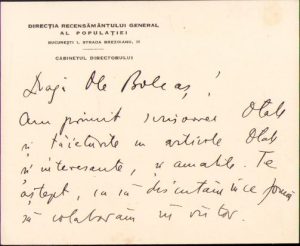 DIRECȚIA RECENSĂMÂNTULUI GENERAL
AL POPULAȚIEI
BUCUREȘTI I, STRADA BREZOIANU, 31
CABINETUL DIRECTORULUI
Dragă Ole Boleaș!
Am primit scrisorea Dtale
și tăieturile cu articole Dtale
și interesante, și amabile. Te
aștept, ca să discutăm în ce formă
să colaborăm în viitor.